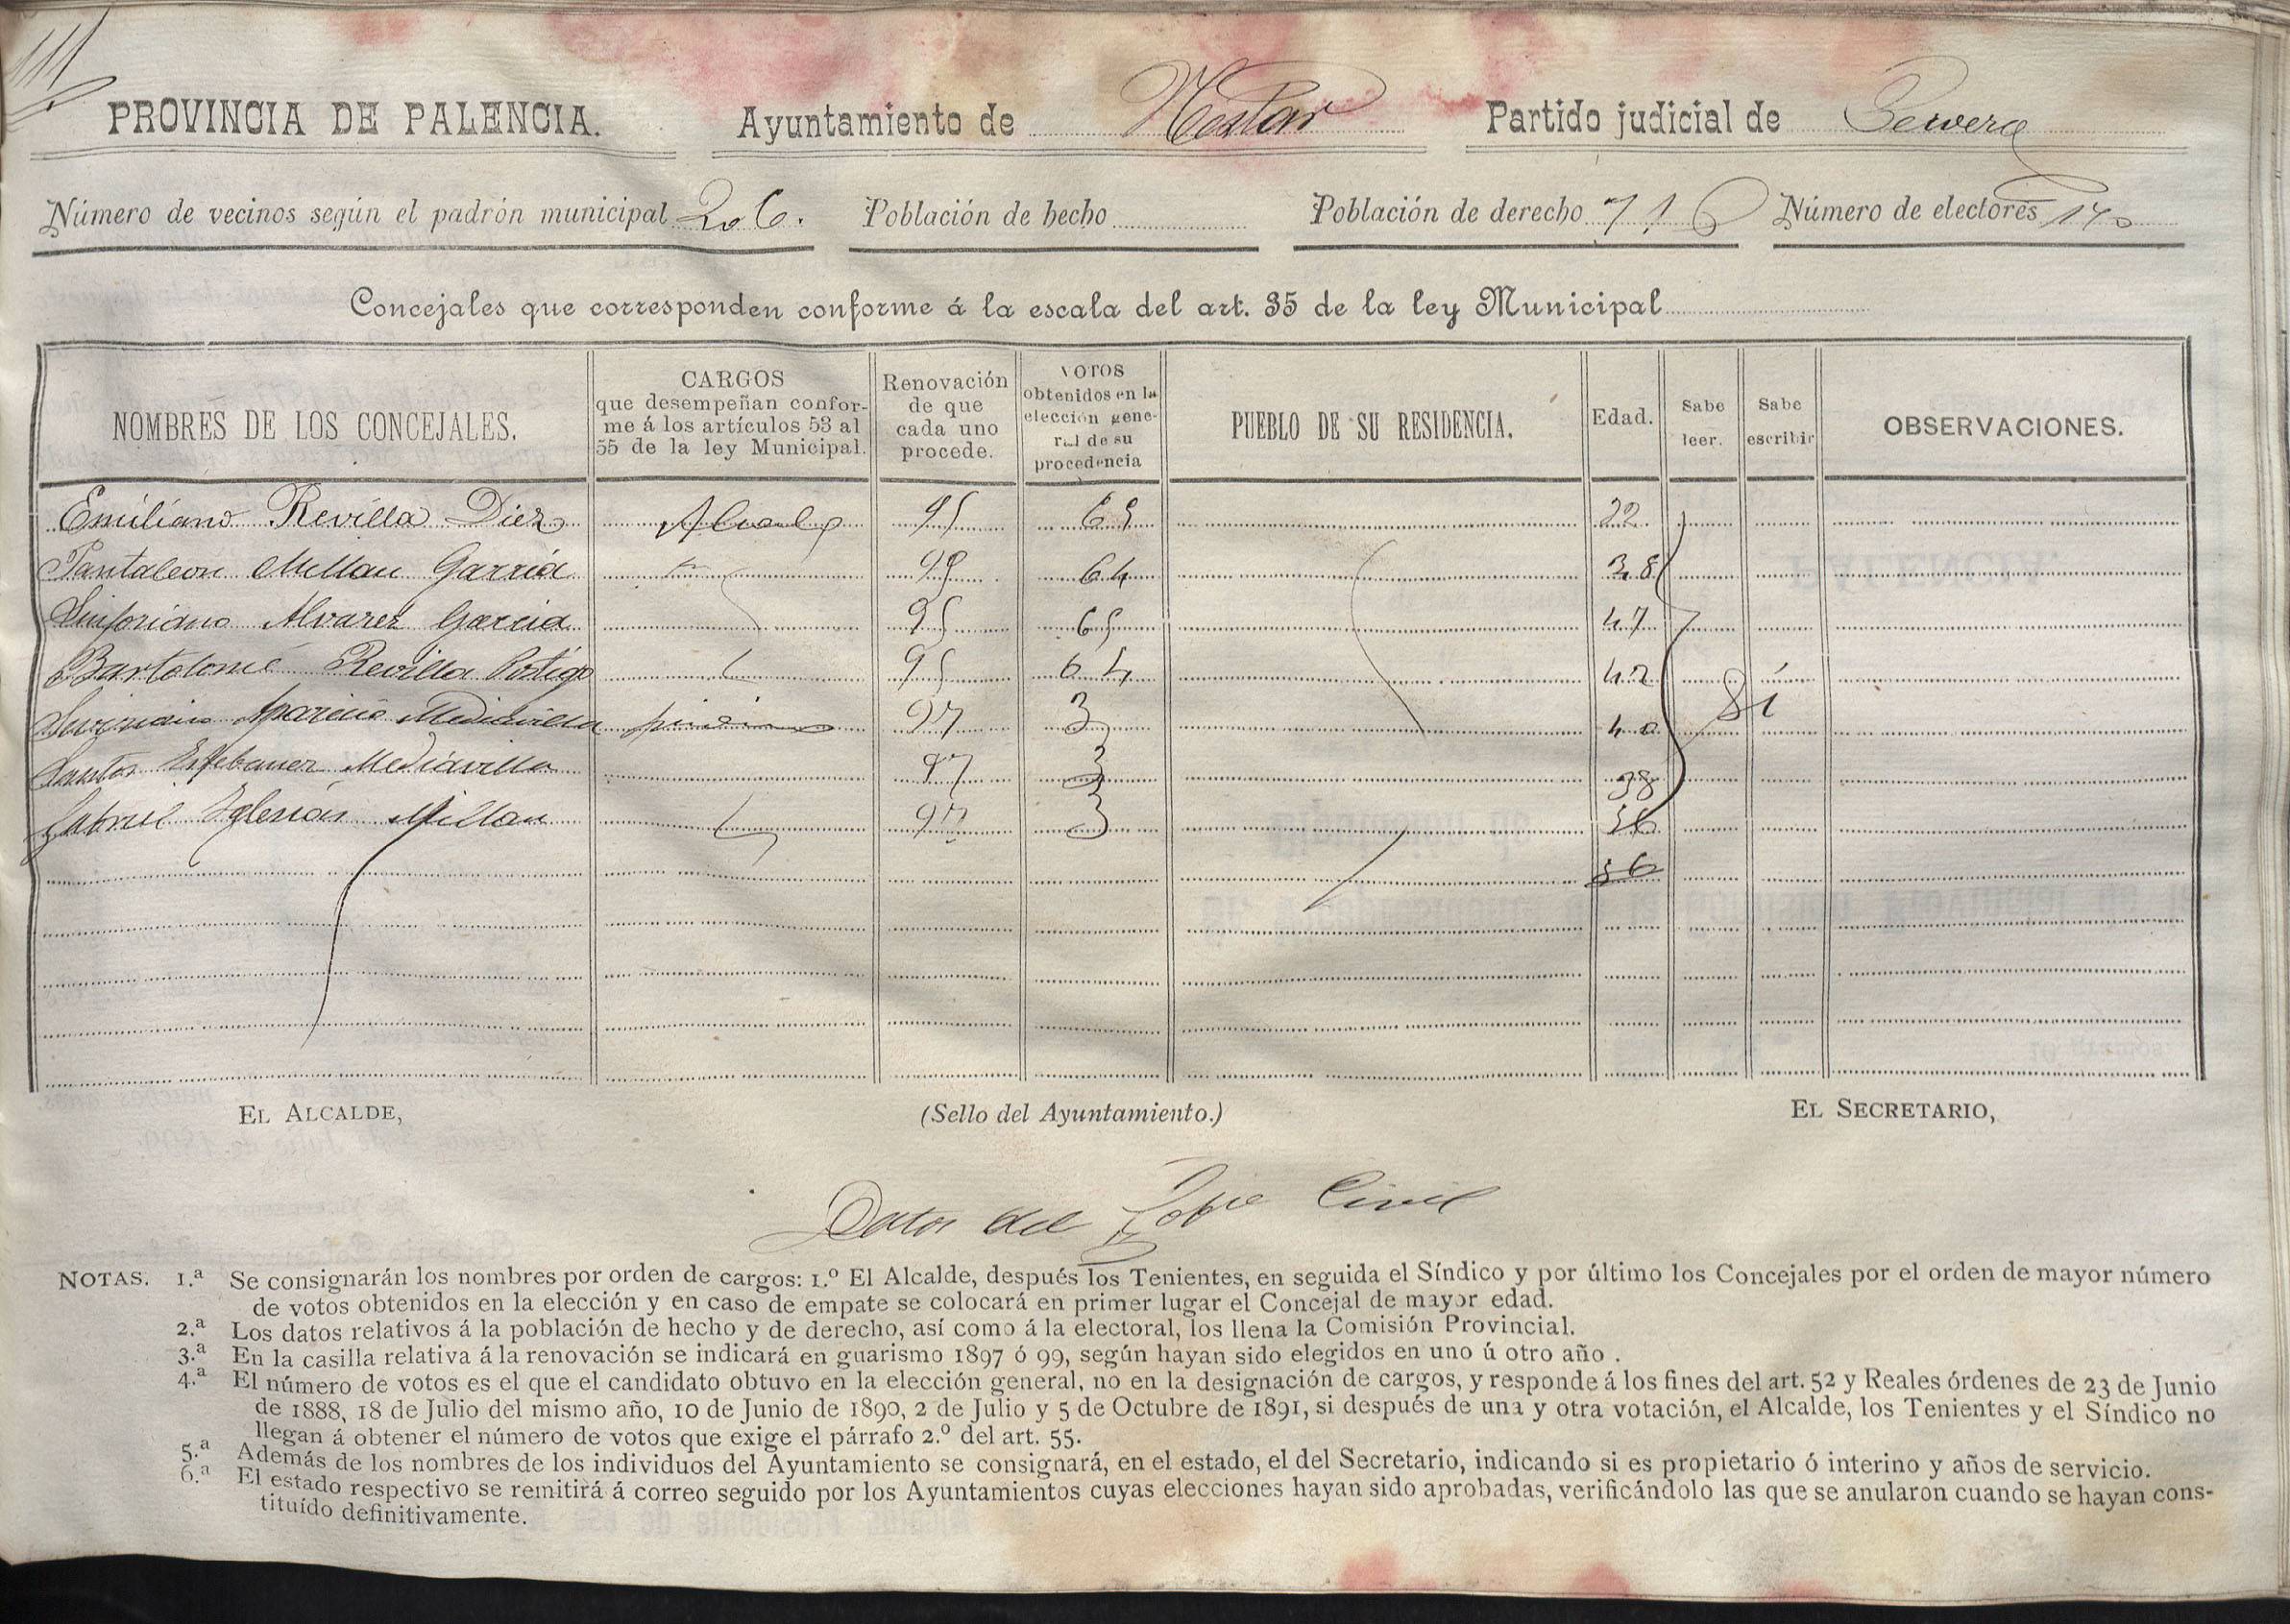 PROVINCIA DE PALENCIA. Ayuntamiento de Nestar Partido judicial de Cervera
Número de vecinos según el padrón municipal 206. Población de hecho Población de derecho 716 Número de electores 140
Concejales que corresponden conforme á la escala del art. 35 de la ley Municipal
NOMBRES DE LOS CONCEJALES. CARGOS que desempeñan conforme á los artículos 53 al 55 de la ley Municipal. Renovación de que cada uno procede. VOTOS obtenidos en la elección general de su procedencia PUEBLO DE SU RESIDENCIA. Edad. Sabe leer. Sabe escribir OBSERVACIONES.
Emiliano Revilla Diez Alcalde 95 65
Pantaleon Millan Garcia 64 38
Sinforiano Alvarez Garcia 95 65 47
Bartolomé Revilla Postigo 95 64 42 Si
Aparicio Mediavilla 97 3 40
Santos Estebanez Mediavilla 97 3 38
Gabriel Iglesias Millan 97 3 56
56
EL ALCALDE, (Sello del Ayuntamiento.) EL SECRETARIO,
Datos del Gobno Civil
NOTAS. 1.ª Se consignarán los nombres por orden de cargos: 1.º El Alcalde, después los Tenientes, en seguida el Síndico y por último los Concejales por el orden de mayor número
de votos obtenidos en la elección y en caso de empate se colocará en primer lugar el Concejal de mayor edad.
2.ª Los datos relativos á la población de hecho y de derecho, así como á la electoral, los llena la Comisión Provincial.
3.ª En la casilla relativa á la renovación se indicará en guarismo 1897 ó 99, según hayan sido elegidos en uno ú otro año .
4.ª El número de votos es el que el candidato obtuvo en la elección general, no en la designación de cargos, y responde á los fines del art. 52 y Reales órdenes de 23 de Junio
de 1888, 18 de Julio del mismo año, 10 de Junio de 1890, 2 de Julio y 5 de Octubre de 1891, si después de una y otra votación, el Alcalde, los Tenientes y el Síndico no
llegan á obtener el número de votos que exige el párrafo 2.º del art. 55.
5.ª Además de los nombres de los individuos del Ayuntamiento se consignará, en el estado, el del Secretario, indicando si es propietario ó interino y años de servicio.
6.ª El estado respectivo se remitirá á correo seguido por los Ayuntamientos cuyas elecciones hayan sido aprobadas, verificándolo las que se anularon cuando se hayan cons-
tituído definitivamente.